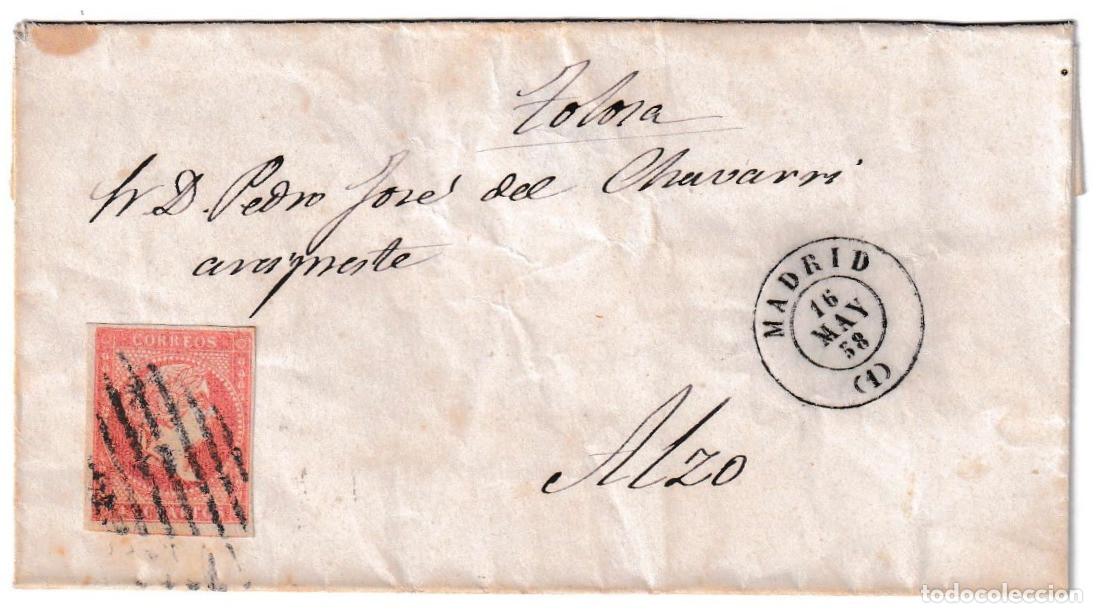 Tolosa
Sr. D. Pedro José del Chavarri
arcipreste
CORREOS
MADRID
16
MAY
58
(1)
Alzo
todocoleccion